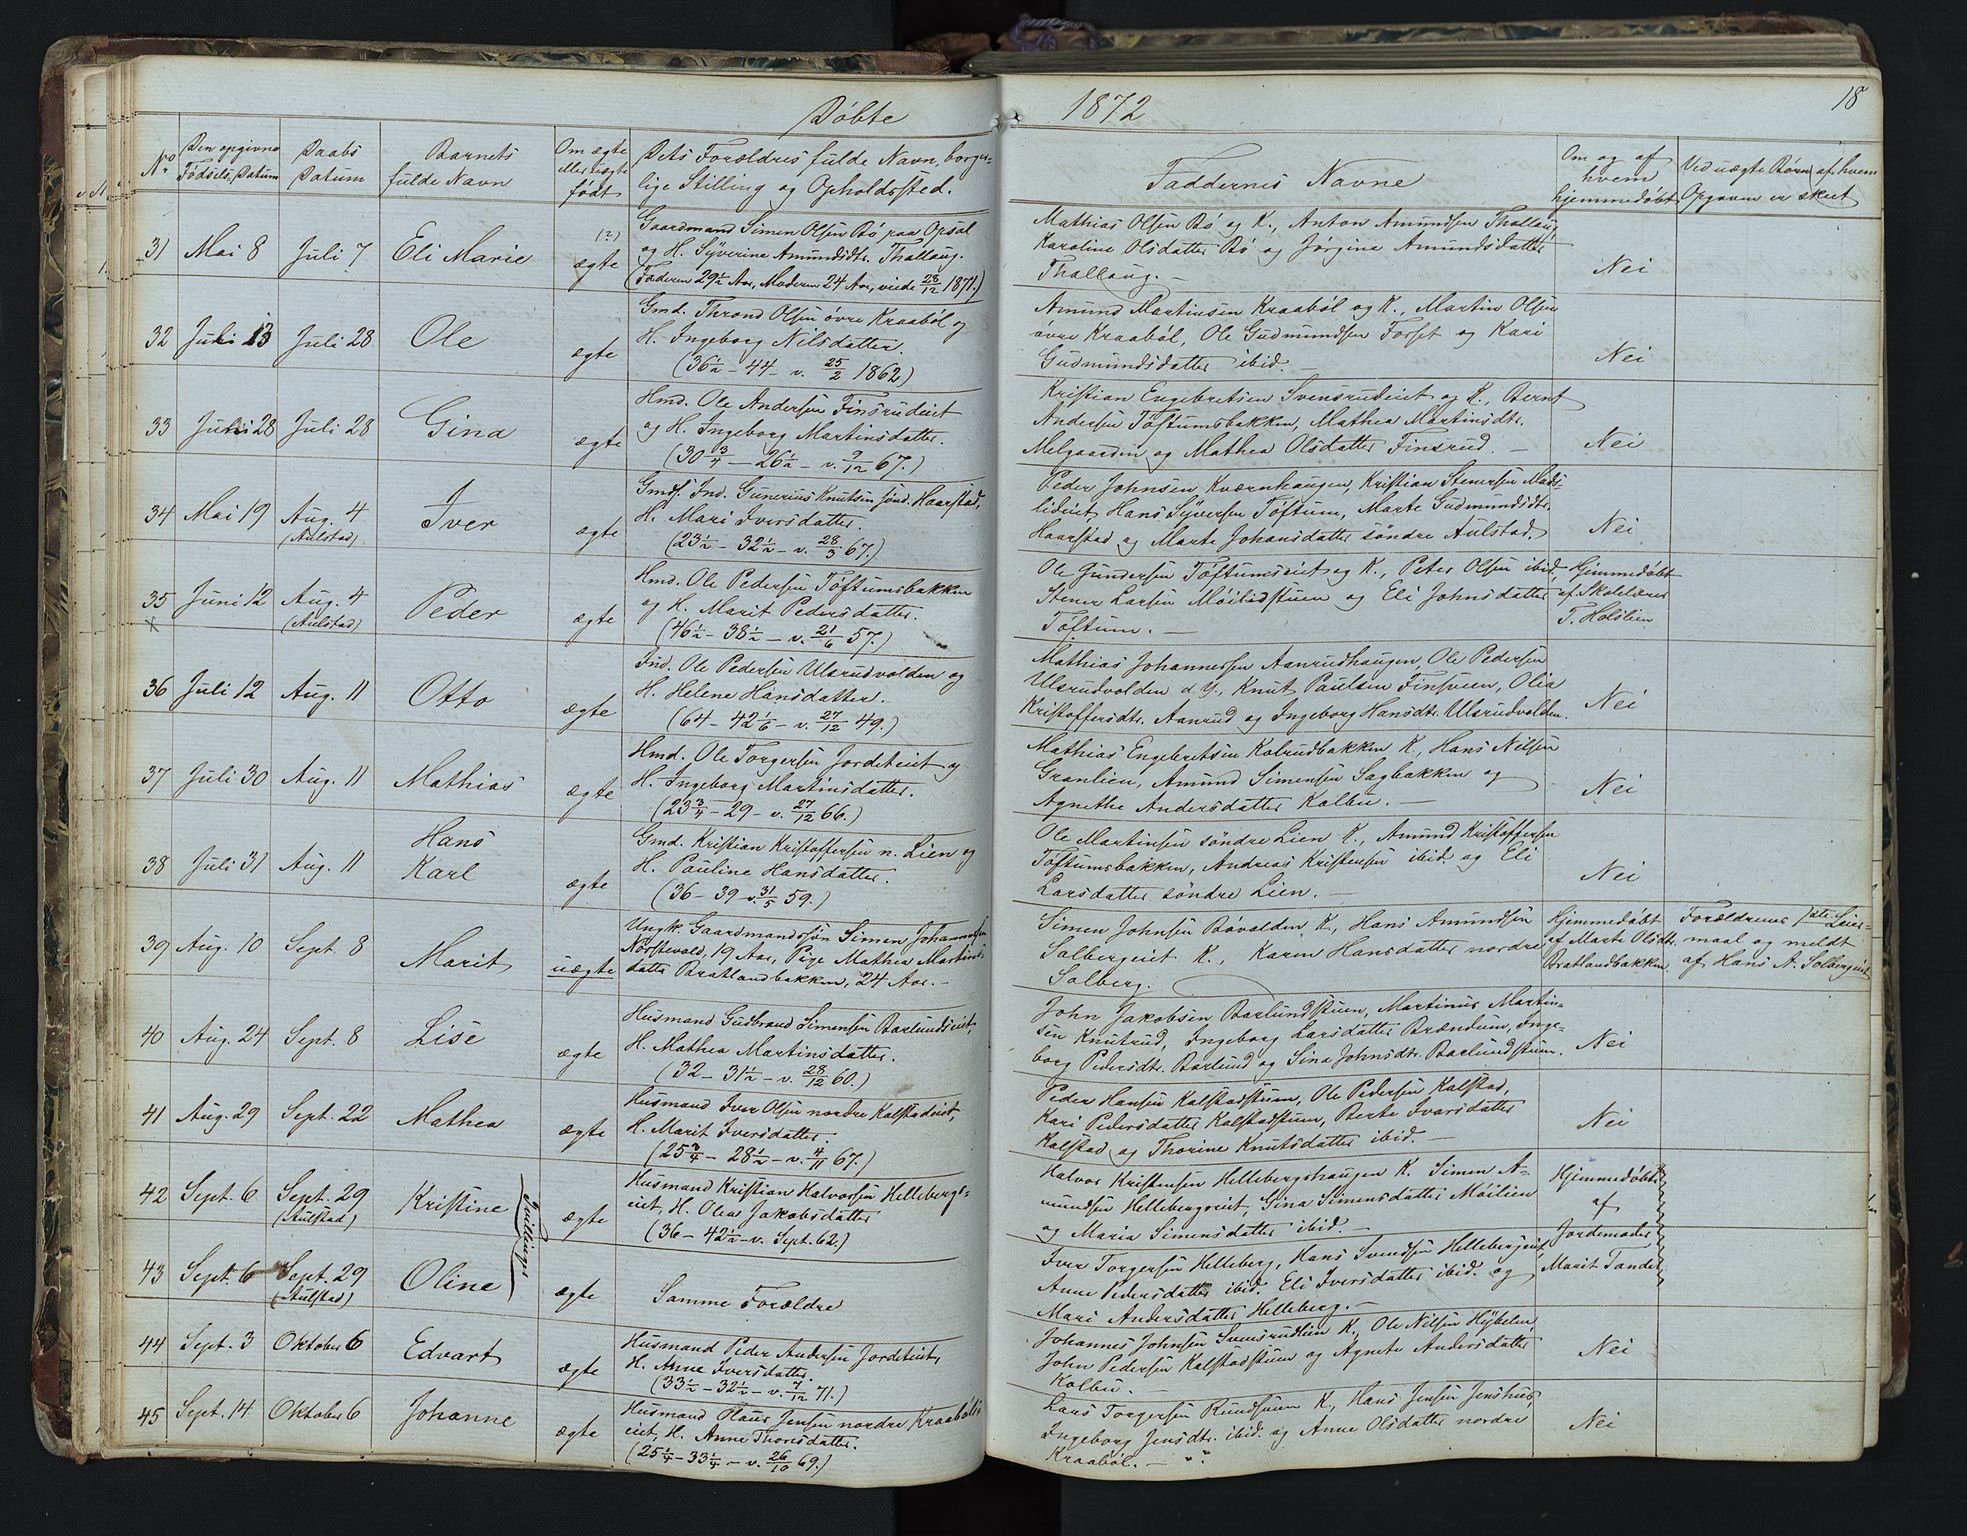 Døbte
1872
18
No
Den opgivne Fødsels Datum
Daabs Datum
Barnets fulde Navn
Om ægte eller uægte født
Dets Forældres fulde Navn, borgerlige Stilling og Opholdssted.
Faddernes Navne
Om og af hvem hjemmedøbt
Ved uægte Børn af hvem Opgaven er skeet
31 Mai 8 Juli 7 Eli Marie (?) ægte
Gaardmand Simen Olsen Bø paa Opsal
og H. Syverine Amundsdtr. Thallaug.
(Faderen 29½ Aar, Moderen 24 Aar, viede 28/12 1871.)
Mathias Olsen Bø og K., Anton Amundsen Thallaug,
Karoline Olsdatter Bø og Jørgine Amundsdatter
Thallaug. —
Nei
32 Juli 13 Juli 28 Ole ægte
Gmd. Thrond Olsen övre Kraaböl og
H. Ingeborg Nilsdatter.
(36½ – 44 – v. 25/2 1862)
Amund Martinsen Kraaböl og K., Martin Olsen
övre Kraaböl, Ole Gudmundsen Forset og Kari
Gudmundsdatter ibid.
Nei
33 28 Juli 28 Gina ægte
Hmd. Ole Andersen Finsrudeiet
og H. Ingeborg Martinsdatter.
(30¾ – 26½ – v. 9/12 67.)
Kristian Engebretsen Svensrudeiet og K., Bernt
Andersen Töftumsbakken, Mathea Martinsdtr.
Melgaarden og Mathea Olsdatter Finsrud. —
Nei
34 Mai 19 Aug. 4 (Aulstad) Iver ægte
Gmds. Ind. Gunerius Knutsen sönd. Haarstad,
H. Mari Iversdatter.
(23½ – 32½ – v. 28/3 67.)
Peder Johnsen Kværnhaugen, Kristian Stenersen
Hans Syversen Töftum, Marte Gudmundsdtr.
Haarstad og Marte Johansdatter söndre Aulstad.
Nei
35 Juni 12 Aug. 4 (Aulstad) Peder ægte
Hmd. Ole Pedersen Töftumsbakken
og H. Marit Pedersdatter.
(46½ – 38½ – v. 21/6 57.)
Ole Gundersen Töftumseiet og K., Peter Olsen ibid,
Stener Larsen Möilidstuen og Eli Johnsdatter
Töftum. —
Hjemmedøbt af Skolelærer T. Holslien
36 Juli 12 Aug. 11 Otto ægte
Ind. Ole Pedersen Ulsrudvolden og
H. Helene Hansdatter.
(64 – 42 1/6 – v. 27/12 49.)
Mathias Johannessen Aanrudhaugen, Ole Pedersen
Ulsrudvolden d. y., Knut Paulsen Finsveen, Olia
Kristoffersdtr. Aanrud og Ingeborg Hansdtr. Ulsrudvolden.
Nei
37 Juli 30 Aug. 11 Mathias ægte
Hmd. Ole Torgersen Jordeteiet og
H. Ingeborg Martinsdatter.
(23¾ – 29 – v. 27/12 66.)
Mathias Engebretsen Kalrudbakken K., Hans Nilsen
Granlien, Amund Simensen Sagbakken og
Agnethe Andersdatter Kolbu. —
Nei
38 Juli 31 Aug. 11 Hans Karl ægte
Gmd. Kristian Kristoffersen n. Lien og
H. Pauline Hansdatter.
(36 – 39 – v. 31/5 59.)
Ole Martinsen söndre Lien K., Amund Kristoffersen
Töftumsbakken, Andreas Kristensen ibid og Eli
Larsdatter söndre Lien. —
Nei
39 Aug. 10 Sept. 8 Marit uægte
Ungk. Gaardmandssön Simen Johannessen
Norstevold, 19 Aar, Pige Mathea Martins-
datter Bratlandbakken, 24 Aar. –
Simen Johnsen Bövolden K., Hans Amundsen
Solbergeiet K., Karen Hansdatter nordre
Solberg.
Hjemmedøbt af Marte Olsdtr. Bratlandbakken
Forældrenes 1ste Leiermaal og meldt af Hans A. Solbergeiet
40 Aug. 24 Sept. 8 Lise ægte
Husmand Gudbrand Simensen Barlundseiet,
H. Mathea Martinsdatter.
(32 – 31½ – v. 28/12 60.)
John Jakobsen Barlundstuen, Martinus Martin-
sen Knutrud, Ingeborg Larsdatter Brændum, Inge-
borg Pedersdtr. Barlund og Sina Johnsdtr. Barlundstuen.
Nei
41 Aug. 29 Sept. 22 Mathea ægte
Husmand Iver Olsen nordre Kalstadeiet,
H. Marit Iversdatter.
(25¾ – 28½ – v. 4/11 67.)
Peder Hansen Kalstadstuen, Ole Pedersen Kalstad,
Kari Pedersdatter Kalstadstuen, Berte Ivarsdatter
Kalstad og Thorine Knutsdatter ibid. —
Nei
42 Sept. 6 Sept. 29 (Aulstad) Kristine ægte
Tvillinger
Husmand Kristian Halvorsen Hellebergs-
eiet, H. Olea Jakobsdatter
(36 – 42½ – v. Sept. 62.)
Halvor Kristensen Hellebergshaugen K. Simen A-
mundsen Hellebergseiet, Gina Simensdatter Möilien
og Maria Simensdatter ibid. —
Hjemmedøbte af Jordemoder Marit Tande
43 Sept. 6 Sept. 29 (Aulstad) Oline ægte
Samme Forældre
Iver Torgersen Helleberg, Hans Svendsen Hellebergeiet
Anne Pedersdatter ibid. Eli Iversdatter ibid. og
Mari Andersdatter Helleberg. —
44 Sept. 3 Oktober 6 Edvart ægte
Husmand Peder Andersen Jordeteiet,
H. Anne Iversdatter.
(33½ – 32½ – v. 7/12 71.)
Johannes Johnsen Svensrudlien K., Ole Nilsen Höibelen,
John Pedersen Kalstadstuen og Agnete Andersdatter
Kolbu. —
Nei
45 Sept. 14 Oktober 6 Johanne ægte
Husmand Olaus Jensen nordre Kraaböls-
eiet, H. Anne Thorsdatter.
(25¼ – 33¼ – v. 26/10 69.)
Lars Torgersen Rundstuen K., Hans Jensen Jenshus,
Ingeborg Jensdtr. ibid. og Anne Olsdatter nordre
Kraaböl. —
Nei